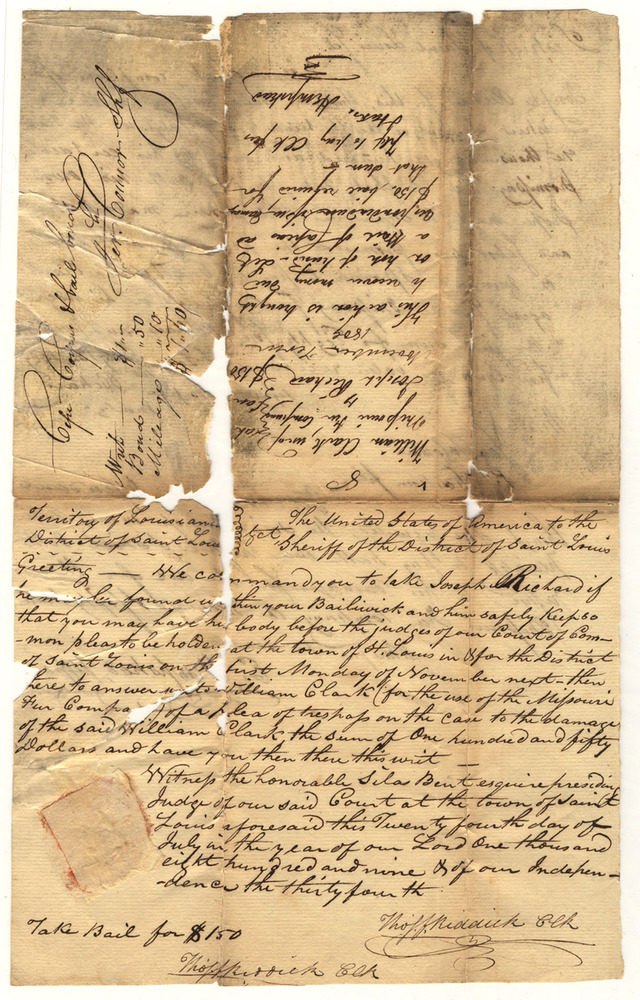 Cepi Corpus & bail bond
Jer. Connor Shff
Writ $1,,—
Bond ,,50
Mileage ,,10
$1,,60
William Clark use of
Missouri Fur Company
Joseph Richard $150
November Term
1809
This action is brought
to recover money had
a writ of Capias ad
$150, bail required for
that sum
to pay Clk fees
Hempstead
Territory of Louisiana
District of Saint Louis Sct.
The United States of America to the
Sheriff of the District of Saint Louis
Greeting — We command you to take Joseph Richard if
he may be found within your Bailiwick and him safely Keep so
that you may have his body before the judges of our Court of Com-
-mon pleas to be holden at the town of St. Louis in & for the District
of Saint Louis on the first Monday of November next then
there to answer unto William Clark (for the use of the Missouri
Fur Company) of a plea of trespass on the case to the damage
of the said William Clark the sum of One hundred and fifty
Dollars and have you then there this writ —
Witness the honorable Sila Bent esquire presiding
Judge of our said Court at the town of Saint
Louis aforesaid this Twenty fourth day of
July in the year of our Lord One thousand
eight hundred and nine & of our Indepen-
-dence the thirty fourth
Thos F Riddick Clk
Take Bail for $150
Thos F Riddick Clk